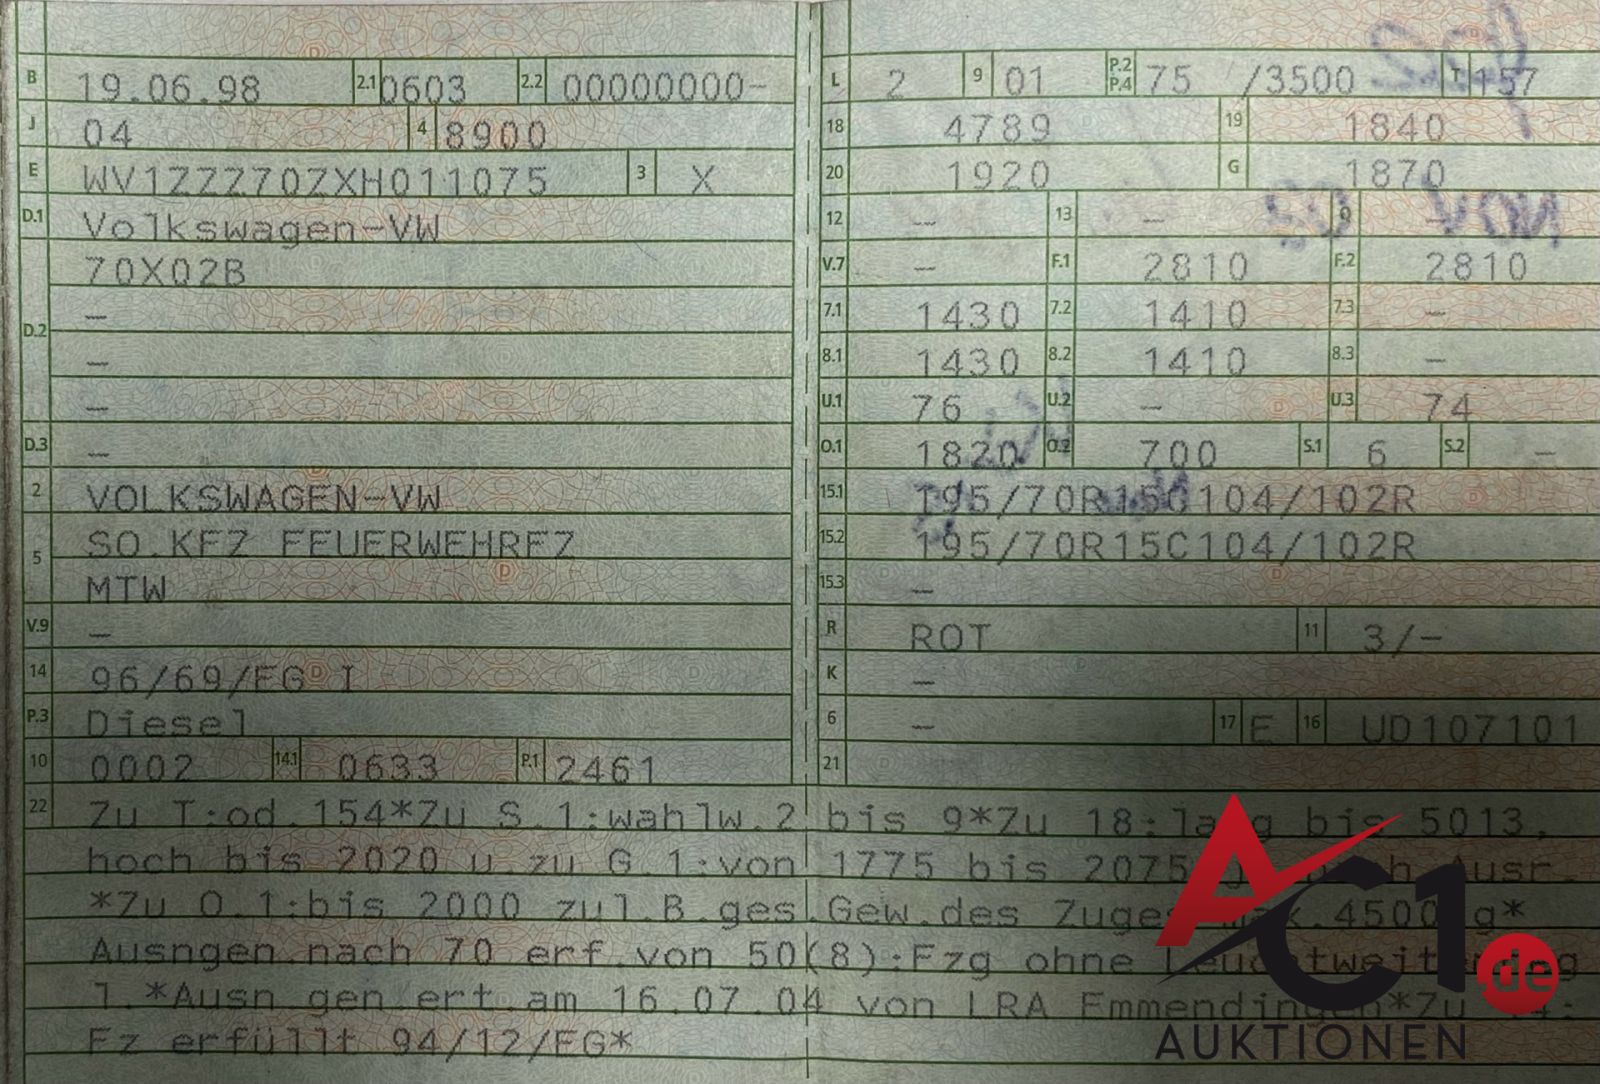 B 19.06.98 2.1 0603 2.2 00000000-
J 04 4 8900
E WV1ZZZ70ZXH011075 3 X
D.1 Volkswagen-VW
D.2 70X02B
–
–
–
D.3 –
2 VOLKSWAGEN-VW
5 SO.KFZ FEUERWEHRFZ
MTW
V.9 –
14 96/69/EG I
P.3 Diesel
10 0002 14.1 0633 P.1 2461
L 2 9 01 P.2 P.4 75 /3500 T 157
18 4789 19 1840
20 1920 G 1870
12 – 13 – Q –
V.7 – F.1 2810 F.2 2810
7.1 1430 7.2 1410 7.3 –
8.1 1430 8.2 1410 8.3 –
U.1 76 U.2 – U.3 74
O.1 1820 O.2 700 S.1 6 S.2 –
15.1 195/70R15C104/102R
15.2 195/70R15C104/102R
15.3 –
R ROT 11 3/–
K –
6 – 17 E 16 UD107101
21
22 Zu T:od.154*Zu S.1:wahlw.2 bis 9*Zu 18:lang bis 5013,
hoch bis 2020 u.zu G.1:von 1775 bis 2075 Ausr.
*Zu O.1:bis 2000 zul.B.ges.Gew.des Zuges max.4500
Ausngen.nach 70 erf.von 50(8):Fzg ohne
1.*Ausn gen ert am 16.07.04 von LRA Emmendingen*Zu 14:
Fz erfüllt 94/12/EG*
AC1.de
AUKTIONEN